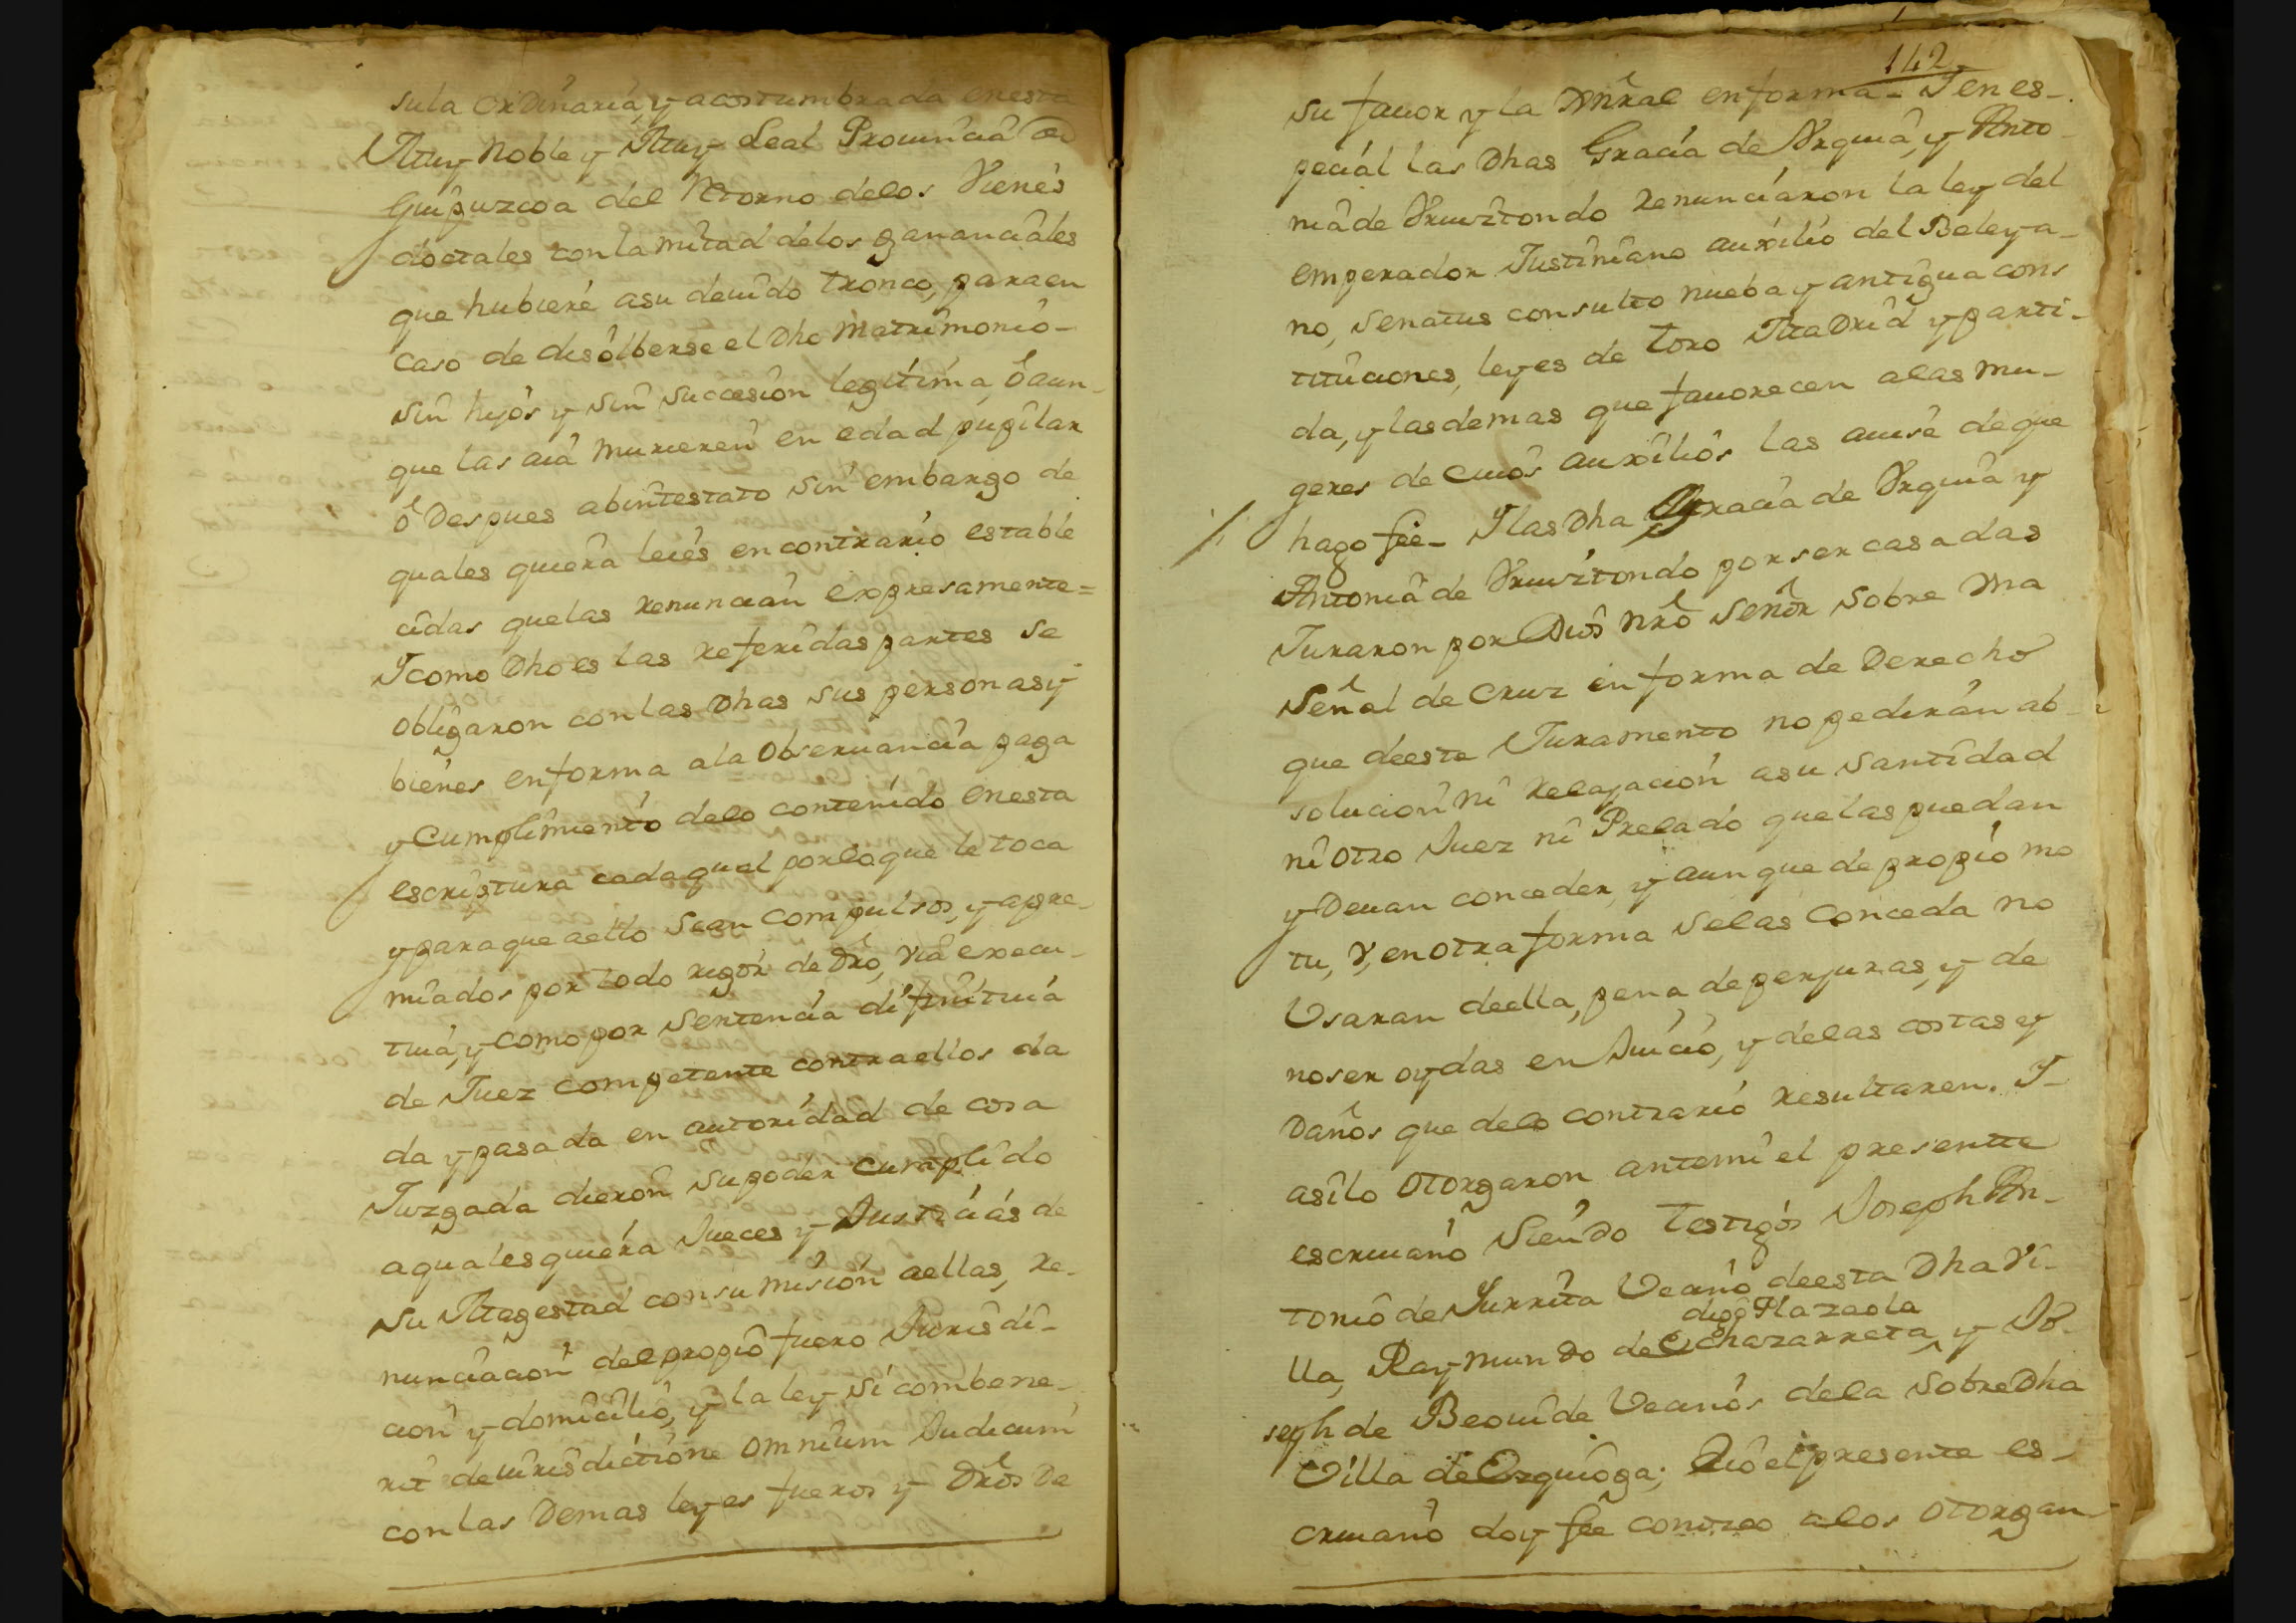 sula ordinaria, y acostumbrada en esta
Muy Noble y Muy Leal Prouincia de
Guipuzcoa del Retorno delos Vienes
doctales con la mitad delos gananciales
que hubiere asu deuido tronco, para en
caso de disolberse el Dho Matrimonio-
sin hijos y sin succesion legitima, ò aun-
que las aia murieren en edad pupilar
ò Despues abintestato sin embargo de
quales quiera leies en contrario estable
cidas que las renuncian expresamente=
Y como Dho es las referidas partes se
obligaron con las Dhas sus personas y
bienes en forma ala Obseruancia paga
y Cumplimiento delo contenido en esta
escriptura cada qual por lo que le toca
y para que aello sean compulsos, y apre-
miados por todo rigor de Dro, via execu-
tiua, y como por sentencia difinitiua
de Juez competente contra ellos da
da y pasada en autoridad de cosa
Juzgada dieron su poder cumplido
a quales quiera Jueces y Justicias de
su Magestad con sumision aellas, re-
nunciacion del propio fuero Jurisdi-
cion y domicilio, y la ley si combene-
rit de iurisdictione omnium Judicum
con las Demas leyes fueros y Dros De
142
su fauor y la Gnral en forma- Y en es-
pecial las Dhas Gracia de Vrquia, y Anto-
nia de Vruuitondo renunciaron la ley del
emperador Justiniano auxilio del Beleya-
no, senatus consulto nueba y antigua cons
tituciones, leyes de Toro Madrid y parti-
da, y las demas que fauorecen alas mu-
geres de cuios auxilios las auise de que
hago fee- Y las Dha Gracia de Vrquia y
Antonia de Vruuitondo por ser casadas
Juraron por Dios nro señor sobre vna
señal de Cruz en forma de Derecho
que de este Juramento no pediran ab-
solucion ni relajacion asu santidad
ni otro Juez ni Prelado que las puedan
y Deuan conceder, y aun que de propio mo
tu, V, en otra forma selas Conceda no
Vsaran de ella, pena de perjuras, y de
no ser oydas en Juicio, y delas costas y
Daños que delo contrario resultaren. Y-
asi lo otorgaron ante mi el presentte
escriuano siendo Testigos Joseph An-
tonio de Yurrita Vecino de esta Dha Vi-
digo Plazaola
lla, Raymundo de Echazarreta, y Jo-
seph de Beouide Vecinos dela sobre Dha
Villa de Ezquioga; Y io el presente es-
criuano doy fee conozco alos otorgan-